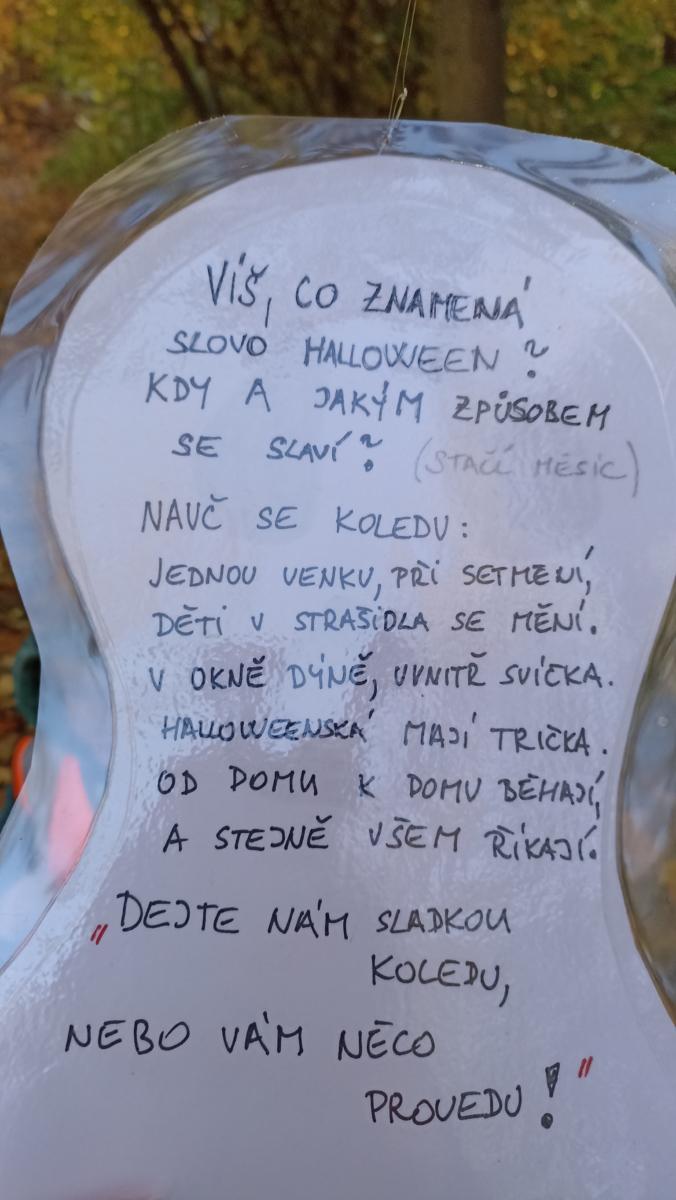 VÍŠ, CO ZNAMENÁ
SLOVO HALLOWEEN?
KDY A JAKÝM ZPŮSOBEM
SE SLAVÍ? (STAČÍ MĚSÍC)
NAUČ SE KOLEDU:
JEDNOU VENKU, PŘI SETMĚNÍ,
DĚTI V STRAŠIDLA SE MĚNÍ.
V OKNĚ DÝNĚ, UVNITŘ SVÍČKA.
HALLOWEENSKÁ MAJÍ TRIČKA.
OD DOMU K DOMU BĚHAJÍ,
A STEJNĚ VŠEM ŘÍKAJÍ.
„DEJTE NÁM SLADKOU
KOLEDU,
NEBO VÁM NĚCO
PROVEDU!"